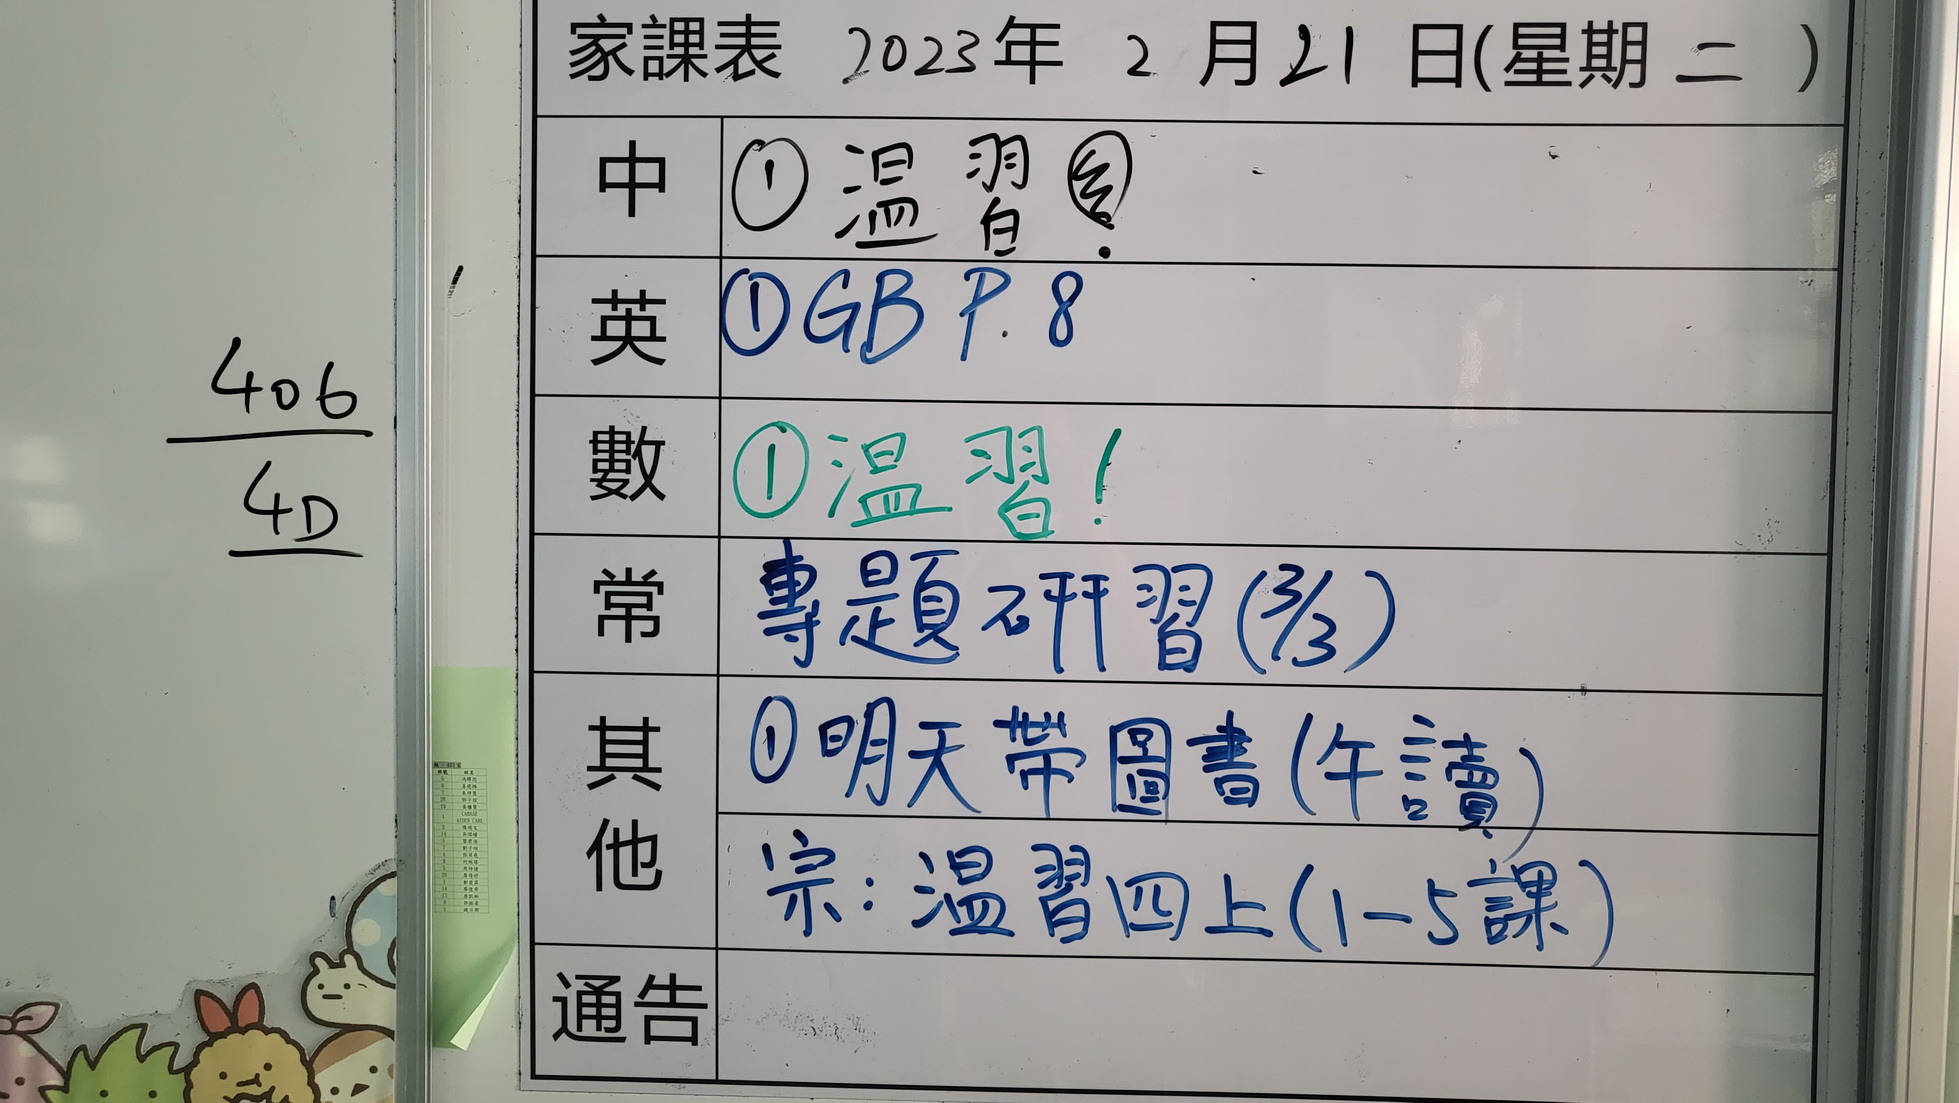 家課表 2023年 2月21日(星期二)
中 ①溫習!
英 ①GB P.8
數 ①溫習!
常 專題研習(3/3)
其他 ①明天帶圖書(午讀)
宗:溫習四上(1-5課)
通告
406
4D